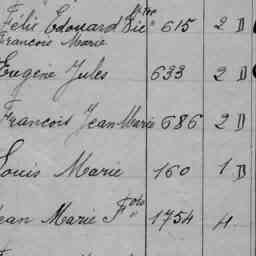 Félix Edouard 615 2 D
François Marie
Eugène Jules 633 2 D
François Jean Marie 686 2 D
Louis Marie 160 1 D
Jean Marie Fois 1754 4